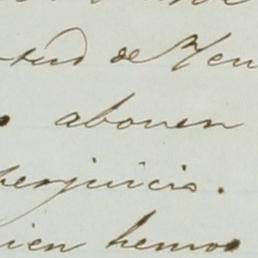 tud de Men
abonen
perjuicio.
bien hemos